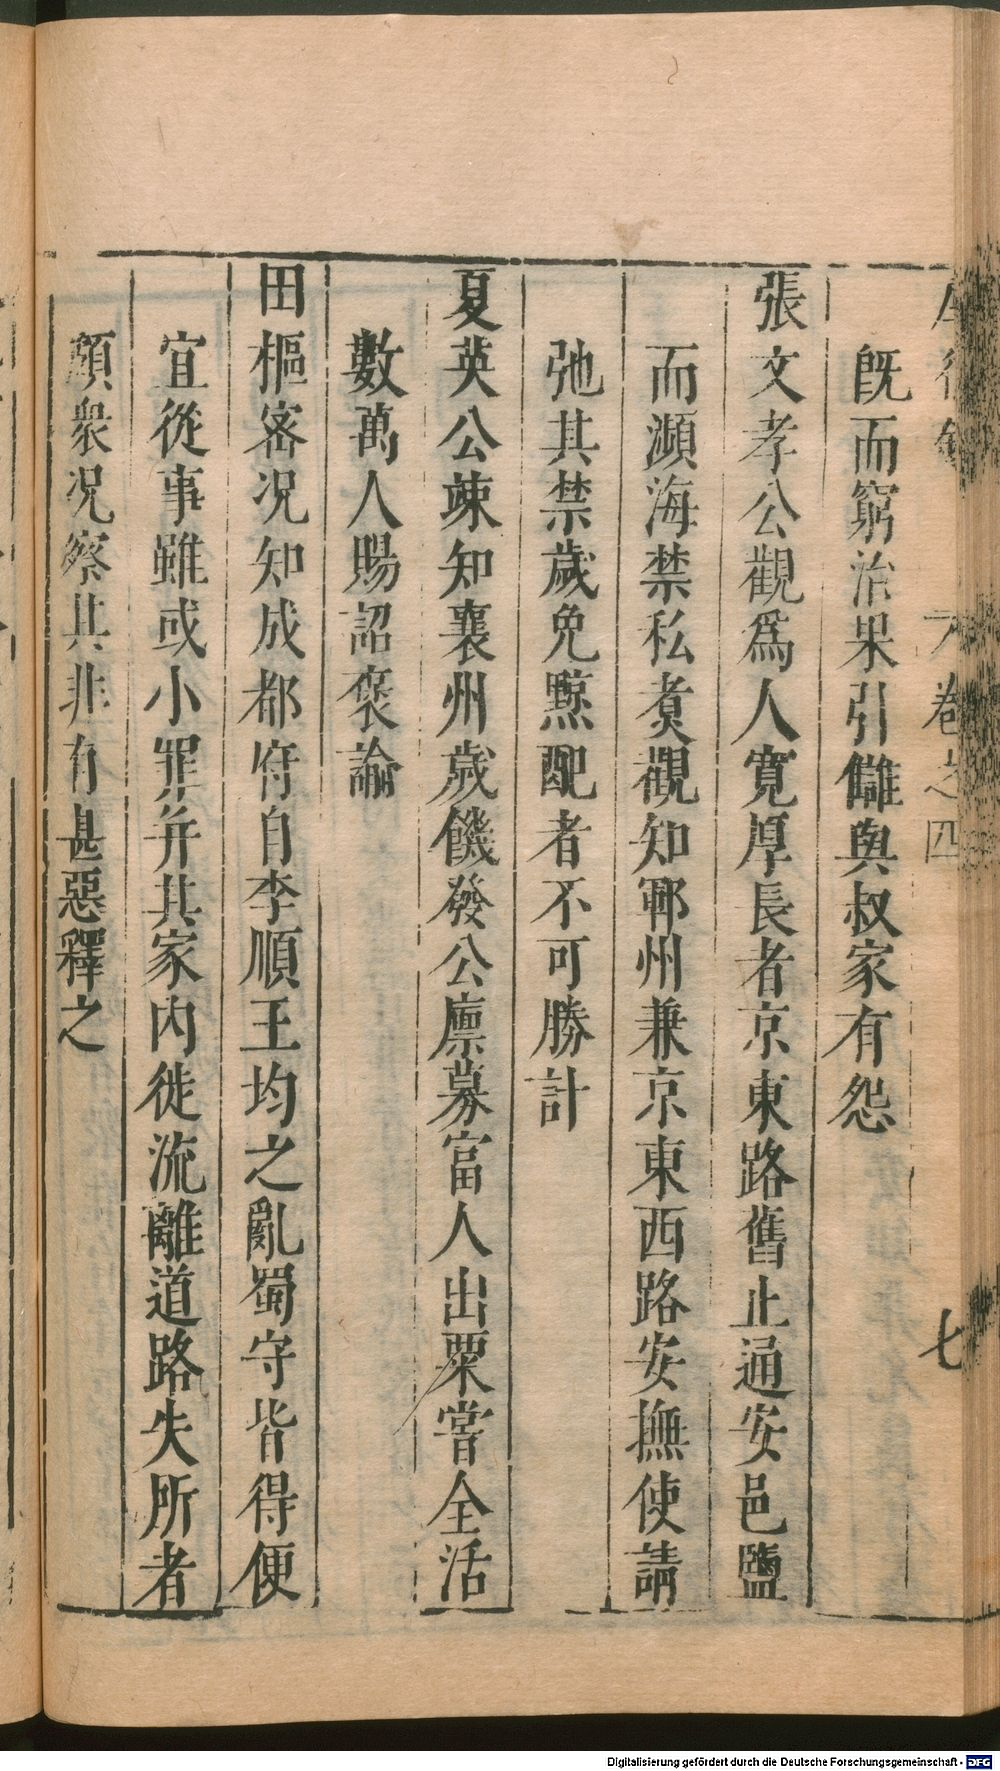 卷之四
七
既而窮治果引讎與叔家有怨
張文孝公觀爲人寬厚長者京東路舊止通安邑鹽
而瀕海禁私煑觀知鄆州兼京東西路安撫使請
弛其禁歲免黥配者不可勝計
夏英公竦知襄州歲饑發公廩募富人出粟嘗全活
數萬人賜詔褒諭
田樞密况知成都府自李順王均之亂蜀守皆得便
宜從事雖或小罪并其家內徙流離道路失所者
頗衆况察其非有甚惡釋之
Digitalisierung gefördert durch die Deutsche Forschungsgemeinschaft - DFG